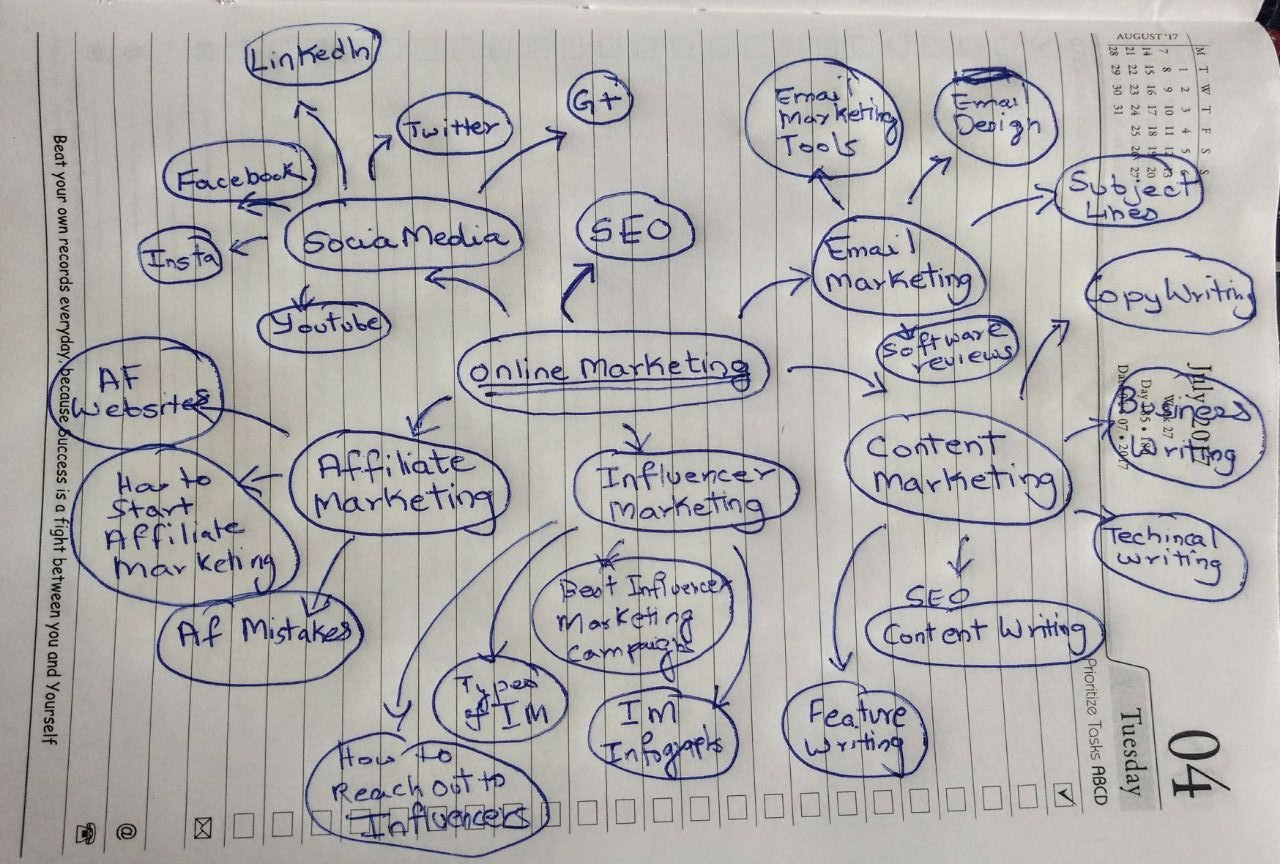 LinkedIn
Twitter
G+
Facebook
Insta
Socia Media
Youtube
SEO
Email
Marketing
Tools
Email
Design
Subject
Lines
Email
Marketing
Online Marketing
Software
reviews
Copy Writing
Business
Writing
Content
Marketing
Techincal
Writing
SEO
Content Writing
Feature
Writing
AF
Websites
Affiliate
Marketing
How to
Start
Affiliate
Marketing
Af Mistakes
Influencer
Marketing
Best Influencer
Marketing
Campaigns
Types
of IM
IM
Infographs
How to
Reach out to
Influencers
AUGUST '17
M 7 14 21 28
T 1 8 15 22 29
W 2 9 16 23 30
T 3 10 17 24 31
F 4 11 18 25
S 5 12 19 26
S 6 13 20 27
July 2017
Week 27
04
Tuesday
Prioritize Tasks ABCD
@
Beat your own records everyday, because success is a fight between you and Yourself